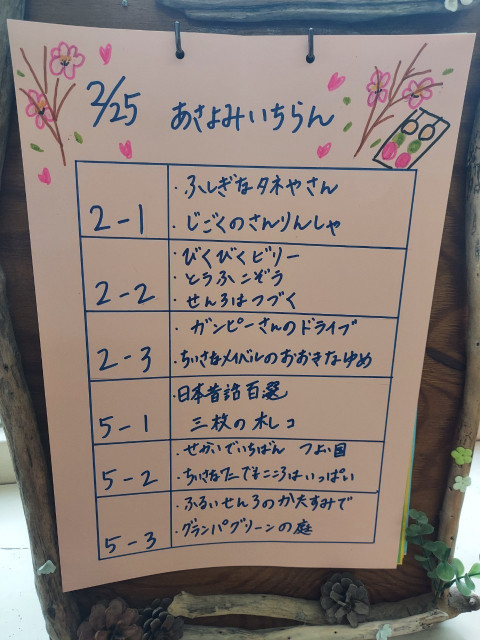 2/25 あさよみいちらん
2-1
・ふしぎなタネやさん
・じごくのさんりんしゃ
2-2
・びくびくビリー
・とうふこぞう
・せんろはつづく
2-3
・ガンピーさんのドライブ
・ちいさなメイベルのおおきなゆめ
5-1
・日本昔話百選
三枚の札コ
5-2
・せかいでいちばん つよい国
・ちいさなたでもこころはいっぱい
5-3
・ふるいせんろのかたすみで
・グランパグリーンの庭